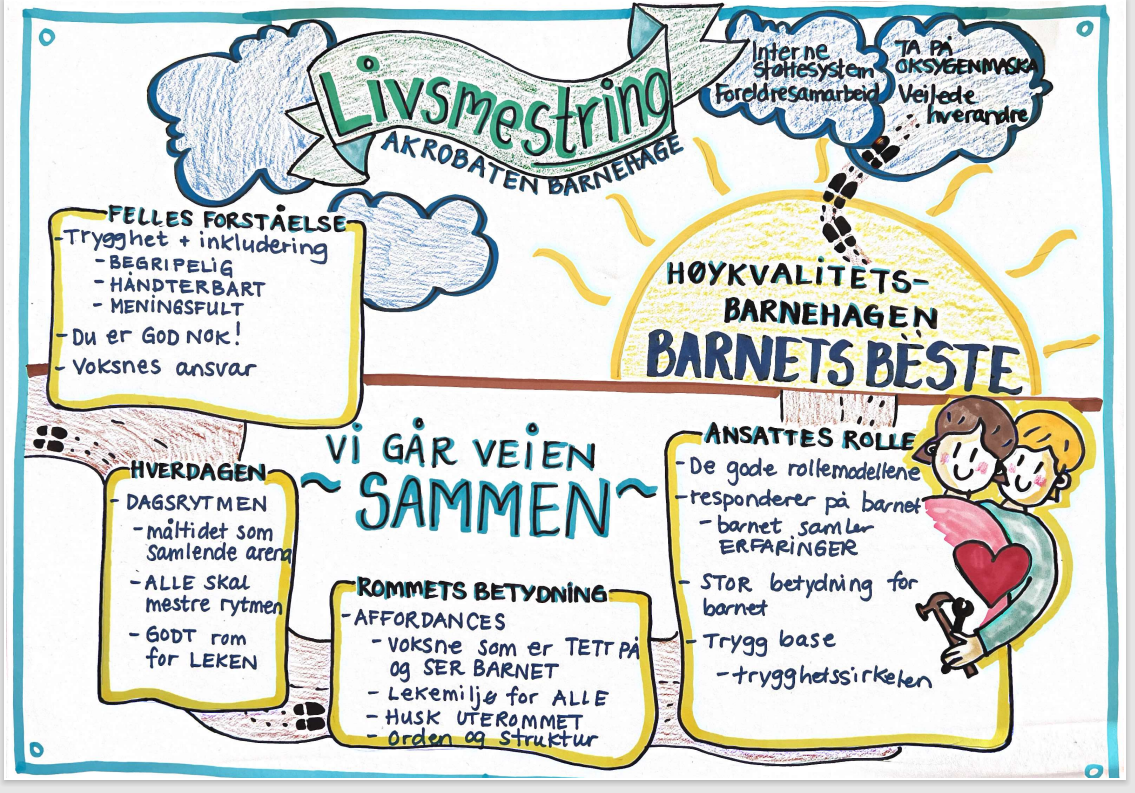 Livsmestring
AKROBATEN BARNEHAGE
Interne
støttesystem
Foreldresamarbeid
TA PÅ
OKSYGENMASKA
Veilede
hverandre
FELLES FORSTÅELSE
-Trygghet + inkludering
- BEGRIPELIG
- HÅNDTERBART
- MENINGSFULT
- Du er GOD NOK!
- Voksnes ansvar
HØYKVALITETS-
BARNEHAGEN
BARNETS BESTE
VI GÅR VEIEN
~ SAMMEN ~
HVERDAGEN
- DAGSRYTMEN
- måltidet som
samlende arena
- ALLE skal
mestre rytmen
- GODT rom
for LEKEN
ROMMETS BETYDNING
- AFFORDANCES
- voksne som er TETT PÅ
og SER BARNET
- Lekemiljø for ALLE
- HUSK UTEROMMET
- Orden og struktur
ANSATTES ROLLE
- De gode rollemodellene
- responderer på barnet
- barnet samler
ERFARINGER
- STOR betydning for
barnet
- Trygg base
- trygghetssirkelen